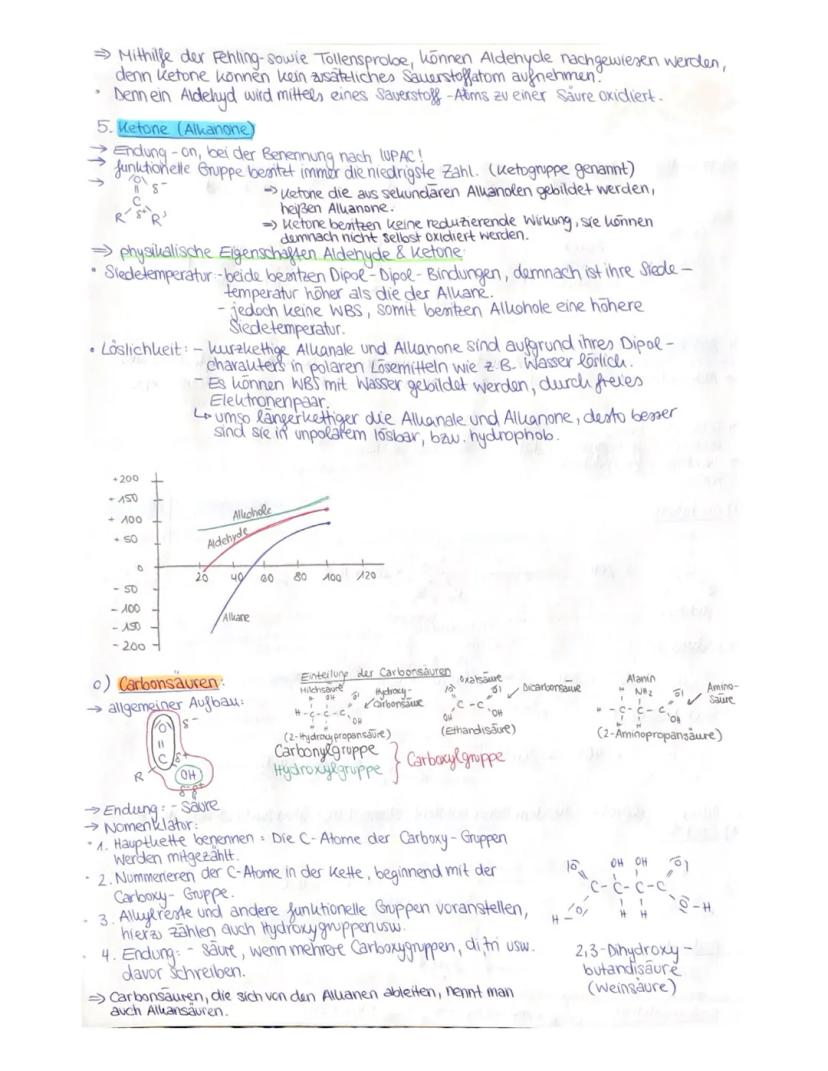 ⇒ Mithilfe der Fehling- sowie Tollensprobe, können Aldehyde nachgewiesen werden,
denn Ketone können kein zusätzliches Sauerstoffatom aufnehmen.
• Denn ein Aldehyd wird mittels eines Sauerstoff-Atms zu einer Säure oxidiert.
5. Ketone (Alkanone)
→ Endung -on, bei der Benennung nach IUPAC!
→ funktionelle Gruppe besitzt immer die niedrigste Zahl. (Ketogruppe genannt)
→ |O| δ-
C δ+
R R'
⇒ Ketone die aus sekundären Alkanolen gebildet werden,
heißen Alkanone.
⇒ Ketone besitzen keine reduzierende Wirkung, sie können
demnach nicht selbst oxidiert werden.
⇒ physikalische Eigenschaften Aldehyde & Ketone:
• Siedetemperatur: - beide besitzen Dipol-Dipol-Bindungen, demnach ist ihre Siede-
temperatur höher als die der Alkane.
- jedoch keine WBS, somit besitzen Alkohole eine höhere
Siedetemperatur.
• Löslichkeit: - kurzkettige Alkanale und Alkanone sind aufgrund ihres Dipol-
charakters in polaren Lösemitteln wie z.B. Wasser löslich.
- Es können WBS mit Wasser gebildet werden, durch freies
Elektronenpaar.
↳ umso längerkettiger die Alkanale und Alkanone, desto besser
sind sie in unpolarem lösbar, bzw. hydrophob.
+200
+150
+100
+50
0
-50
-100
-150
-200
Alkohole
Aldehyde
Alkane
20 40 60 80 100 120
6) Carbonsäuren:
→ allgemeiner Aufbau:
|O| δ-
C δ+
R OH
δ- δ+
Einteilung der Carbonsäuren
Milchsäure
H OH O
H-C-C-C
H H OH
Hydroxy-
carbonsäure
(2-Hydroxypropansäure)
Oxalsäure
|O O|
C-C
OH OH
Dicarbonsäure
(Ethandisäure)
Alanin
H NH2 O|
H-C-C-C
H H OH
Amino-
säure
(2-Aminopropansäure)
Carbonylgruppe
Hydroxylgruppe
} Carboxylgruppe
→ Endung: -säure
→ Nomenklatur:
• 1. Hauptkette benennen: Die C-Atome der Carboxy-Gruppen
werden mitgezählt.
• 2. Nummerieren der C-Atome in der Kette, beginnend mit der
Carboxy-Gruppe.
• 3. Alkylreste und andere funktionelle Gruppen voranstellen,
hierzu zählen auch Hydroxygruppen usw.
• 4. Endung: -säure, wenn mehrere Carboxygruppen, di, tri usw.
davor schreiben.
⇒ Carbonsäuren, die sich von den Alkanen ableiten, nennt man
auch Alkansäuren.
|O OH OH O|
C-C-C-C
H-O H H O-H
2,3-Dihydroxy-
butandisäure
(Weinsäure)